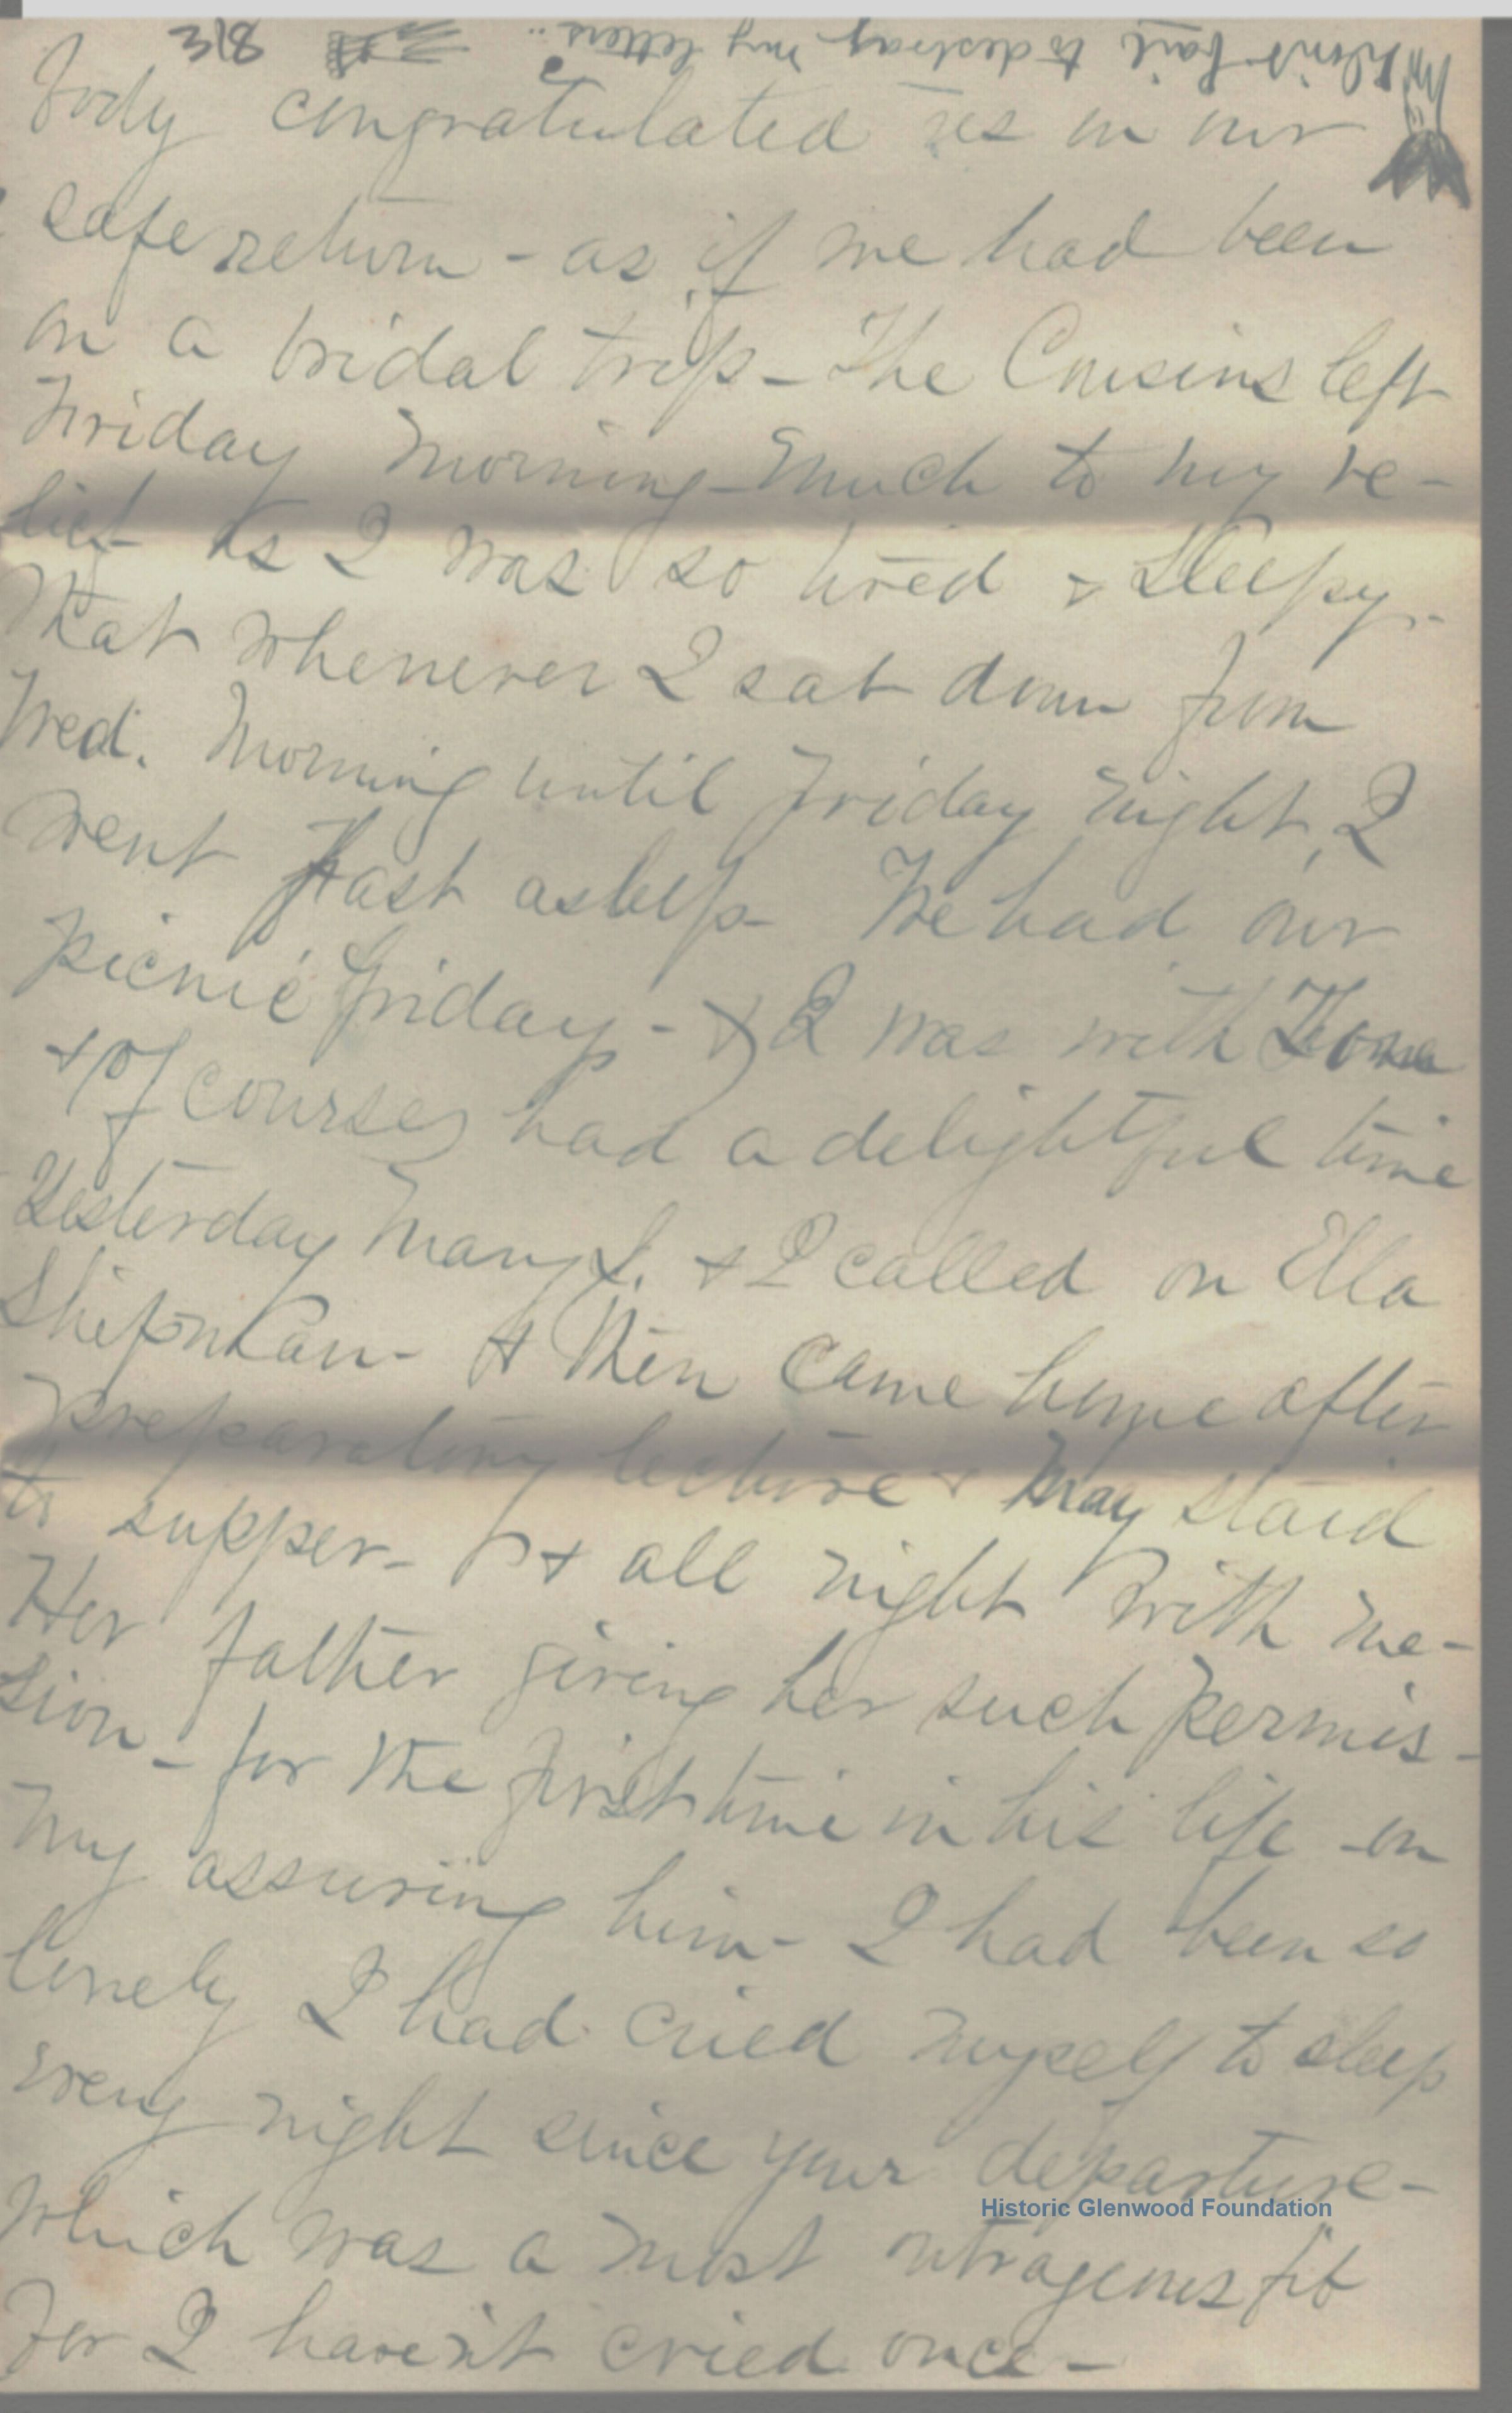 Don't fail to destroy my letters.
body congratulated us on our
safe return - as if we had been
on a bridal trip - The Cousins left
Friday morning - much to my re-
lief as I was so tired & sleepy -
that whenever I sat down from
Wed. morning until Friday night, I
went fast asleep - We had our
picnic Friday - & I was with
& of course, had a delightful time
Yesterday Mary L. & I called on Ella
& then came home after
preparatory lecture & May staid
to supper - & all night with me -
Her father giving her such permis-
sion - for the first time in his life - on
my assuring him - I had been so
lonely I had cried myself to sleep
every night since your departure -
which was a most outrageous fib
for I haven't cried once -
Historic Glenwood Foundation